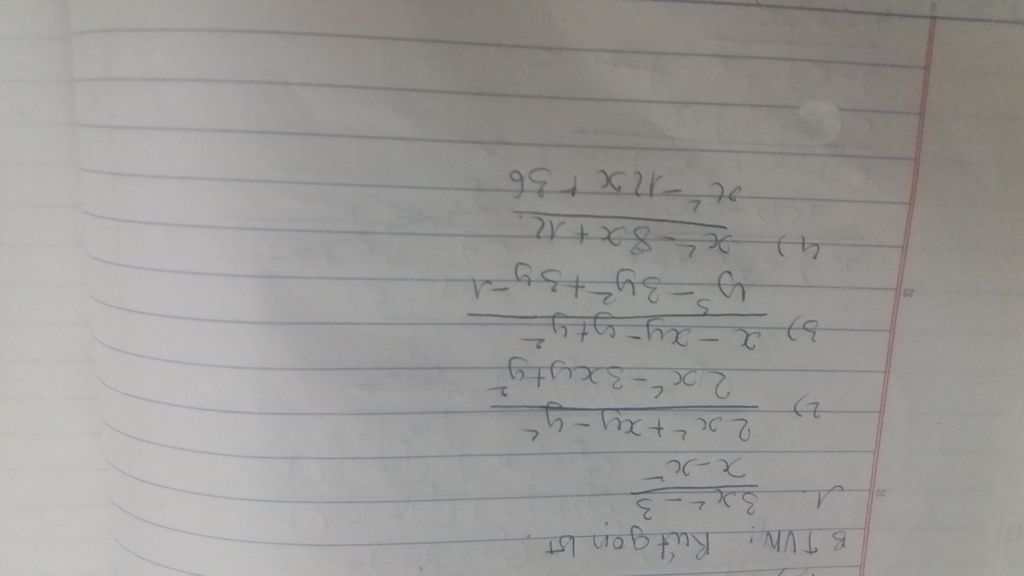 BTVN: Rút gọn bt
1. \frac{3x² - 3}{x - x²}
2) \frac{2x² + xy - y²}{2x² - 3xy + y²}
3) \frac{x - xy - y + y²}{y³ - 3y² + 3y - 1}
4) \frac{x² - 8x + 12}{x² - 12x + 36}